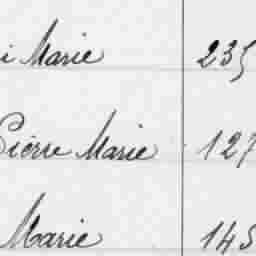 i Marie 235
Pierre Marie 127
Marie 145